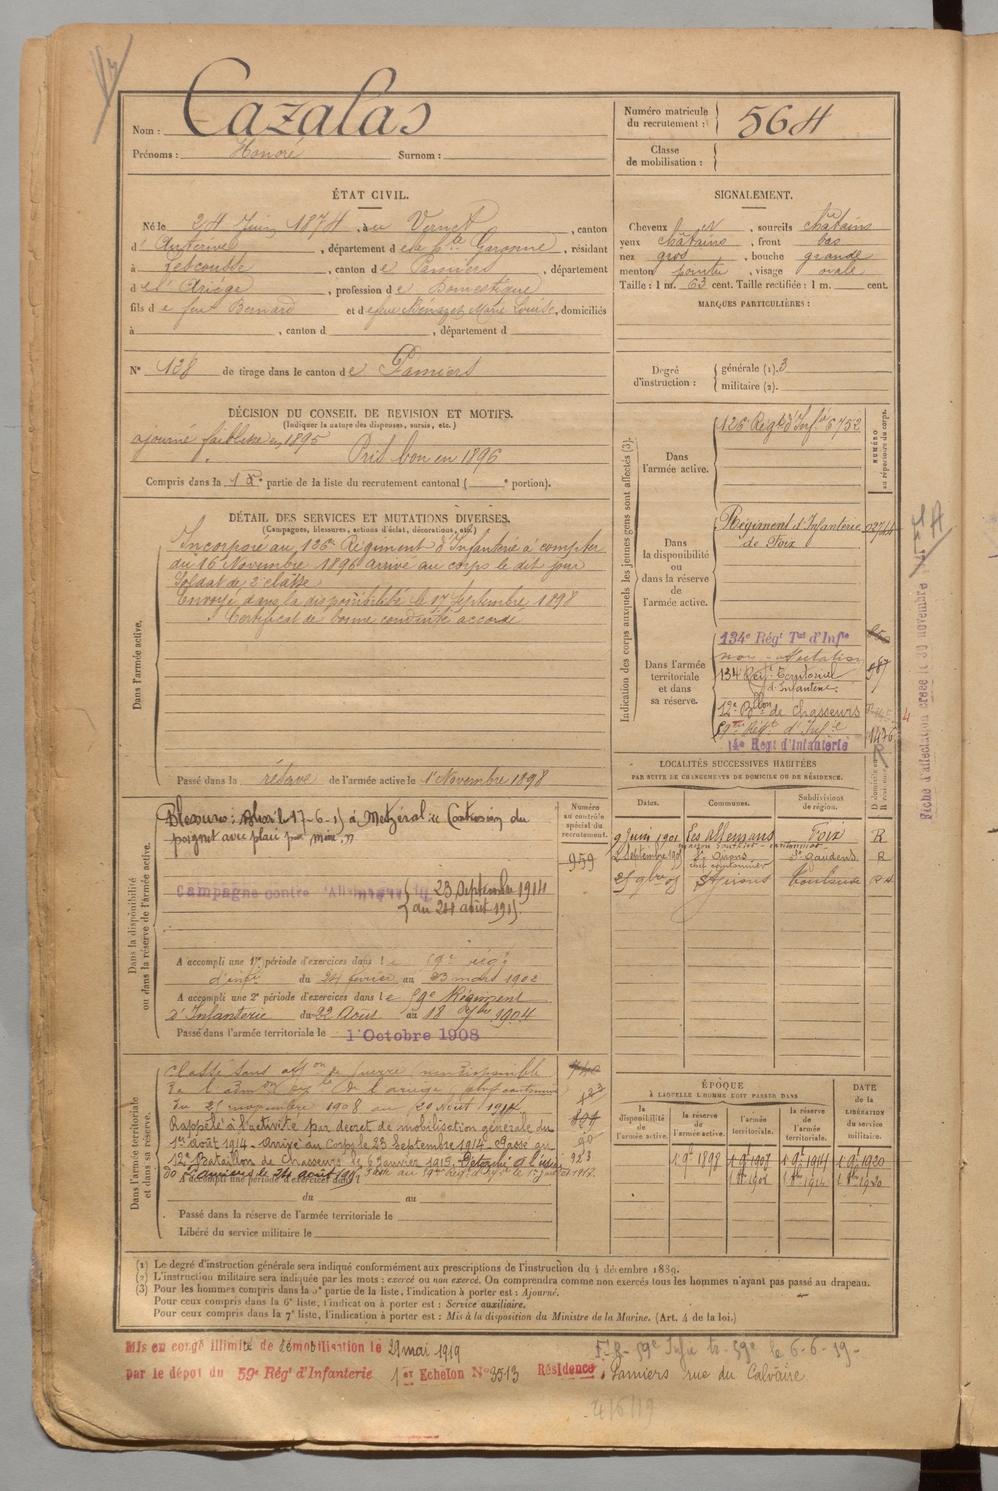 Nom : Cazalas
Prénoms : Honoré Surnom :
Numéro matricule du recrutement : 564
Classe de mobilisation :
ÉTAT CIVIL.
Né le 24 Juin 1874, à u Vernet, canton
d' Auterive, département de la Hte Garonne, résidant
à Lescousse, canton de Pamiers, département
de l'Ariège, profession de Domestique
fils de feu Bernard et de feue Bénazet Marie Louise, domiciliés
à , canton d , département d
N° 128 de tirage dans le canton de Pamiers
SIGNALEMENT.
Cheveux et , sourcils châtains
yeux châtains, front bas
nez gros, bouche grande
menton pointu, visage ovale
Taille : 1 m. 63 cent. Taille rectifiée : 1 m. cent.
MARQUES PARTICULIÈRES :
Degré d'instruction : générale (1). 3
militaire (2).
DÉCISION DU CONSEIL DE REVISION ET MOTIFS.
(Indiquer la nature des dispenses, sursis, etc.)
ajourné faiblesse en 1895
Pris bon en 1896
Compris dans la 1re partie de la liste du recrutement cantonal ( e portion).
DÉTAIL DES SERVICES ET MUTATIONS DIVERSES.
(Campagnes, blessures, actions d'éclat, décorations, etc.)
Dans l'armée active.
Incorporé au 126e Régiment d'Infanterie à compter
du 16 Novembre 1896 arrivé au corps le dit jour
Soldat de 2e classe
Envoyé dans la disponibilité le 17 Septembre 1898
Certificat de bonne conduite accordé
Passé dans la réserve de l'armée active le 1er Novembre 1898
Indication des corps auxquels les jeunes gens sont affectés (3).
NUMÉRO au répertoire du corps.
Dans l'armée active.
126e Régt d'Infie 6752
Dans la disponibilité ou dans la réserve de l'armée active.
Régiment d'Infanterie
de Foix
Dans l'armée territoriale et dans sa réserve.
134e Régt Tal d'Infie
non-affectation
134 Régt Territorial
d'Infanterie.
12e Bllon de Chasseurs
59me Régt d'Infie
14e Regt d'Infanterie
1476
Fiche d'affectation créée le 30 novembre
LOCALITÉS SUCCESSIVES HABITÉES
PAR SUITE DE CHANGEMENTS DE DOMICILE OU DE RÉSIDENCE.
Dates. Communes. Subdivisions de région. D domicile ou R résidence.
9 Juin 1901 Les Allemans Foix R
2 Septembre St Girons St Gaudens R
St Girons Toulouse
Dans la disponibilité ou dans la réserve de l'armée active.
Numéro au contrôle spécial du recrutement.
959
Blessures : Blessé le 17-6-15 à Metzéral "Contusion du
poignet avec plaie par mine."
Campagne contre l'Allemagne du 23 Septembre 1914
au 24 août 1915.
A accompli une 1re période d'exercices dans le 59e régt
d'infie du 24 février au 23 mars 1902
A accompli une 2e période d'exercices dans le 59e Régiment
d'Infanterie du 22 Août au 18 7bre 1904
Passé dans l'armée territoriale le 1er Octobre 1908
Dans l'armée territoriale et dans sa réserve.
Classé sans affon de guerre non disponible
du 25 novembre 1908 au 20 Août 1914
Rappelé à l'activité par décret de mobilisation générale du
1er août 1914. Arrivé au Corps le 23 Septembre 1914. Passé au
12e Bataillon de Chasseurs le 6 Janvier 1915.
A accompli une période d'exercices dans l
du au
Passé dans la réserve de l'armée territoriale le
Libéré du service militaire le
ÉPOQUE
A LAQUELLE L'HOMME DOIT PASSER DANS
DATE de la LIBÉRATION du service militaire.
la disponibilité de l'armée active. la réserve de l'armée active. l'armée territoriale. la réserve de l'armée territoriale.
1 9e 1898 1 9e 1908 1 9e 1914 1 9e 1920
(1) Le degré d'instruction générale sera indiqué conformément aux prescriptions de l'instruction du 4 décembre 1889.
(2) L'instruction militaire sera indiquée par les mots : exercé ou non exercé. On comprendra comme non exercés tous les hommes n'ayant pas passé au drapeau.
(3) Pour les hommes compris dans la 5e partie de la liste, l'indication à porter est : Ajourné.
Pour ceux compris dans la 6e liste, l'indication à porter est : Service auxiliaire.
Pour ceux compris dans la 7e liste, l'indication à porter est : Mis à la disposition du Ministre de la Marine. (Art. 4 de la loi.)
Mis en congé illimité de démobilisation le 21 mai 1919
par le dépôt du 59e Régt d'Infanterie 1er Echelon N° 3513 Résidence : Pamiers rue du Calvaire
le 6-6-19-
4/6/19